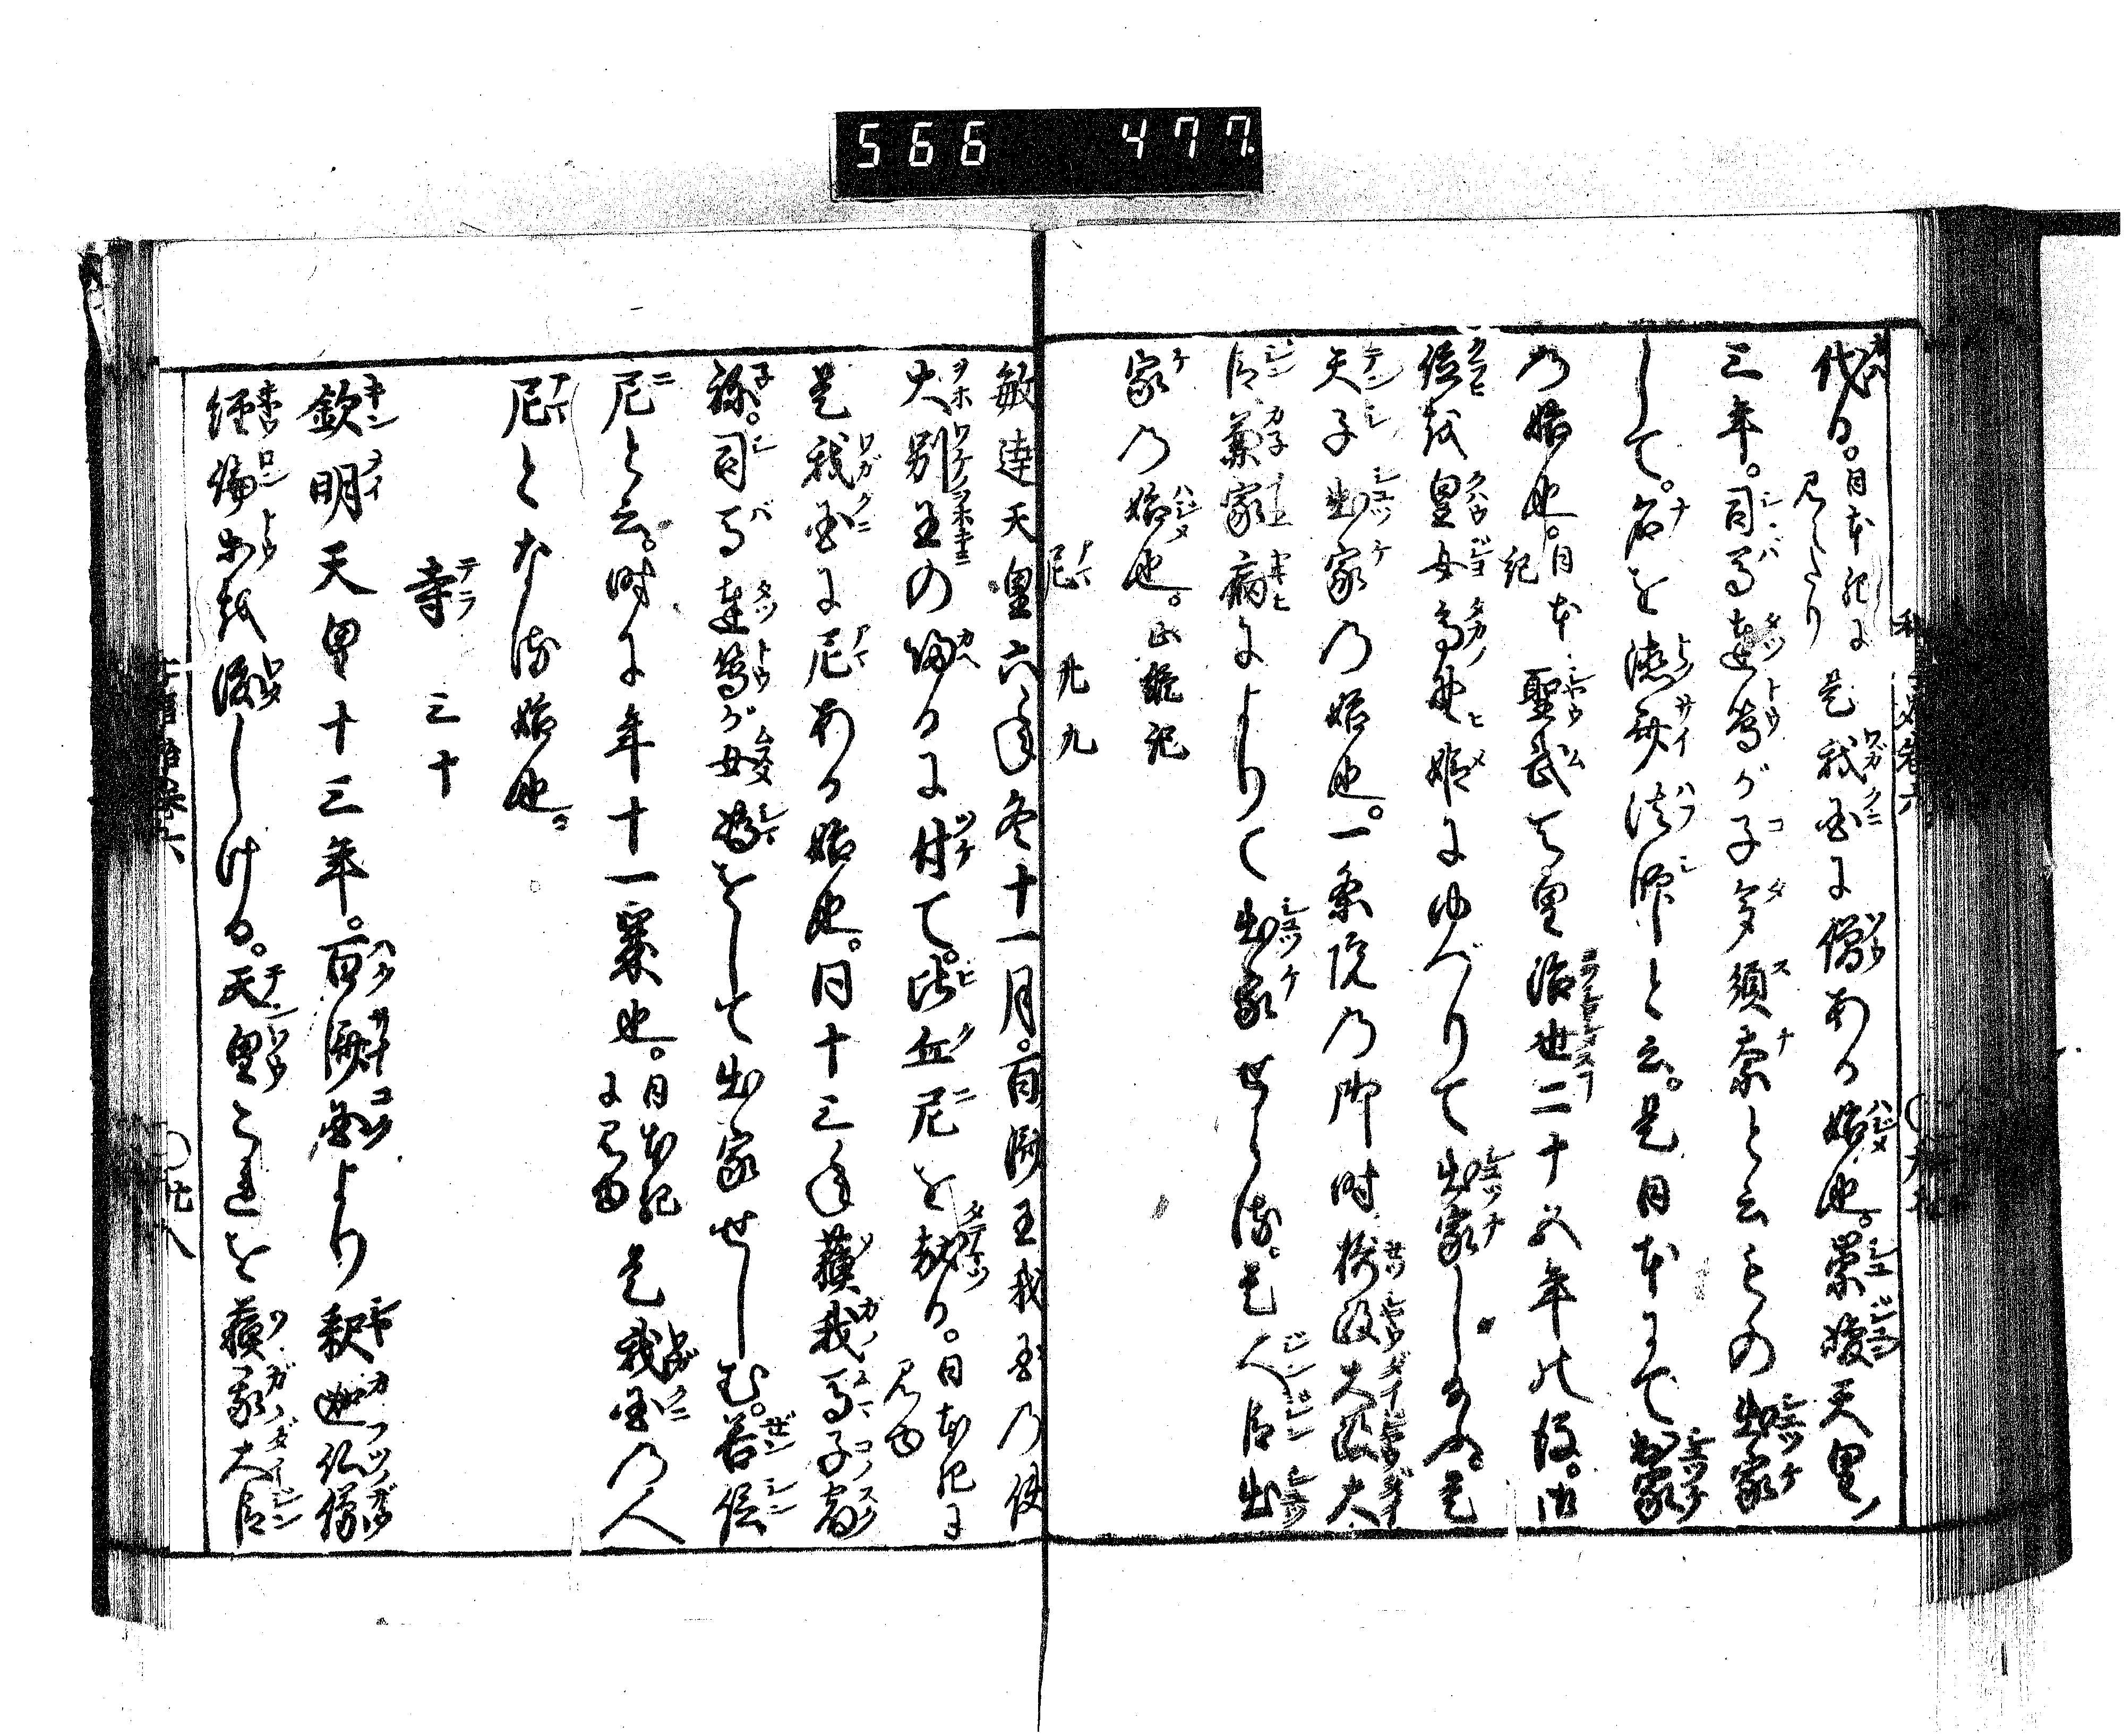 566 477
代る。日本紀に見へたり 是我国に僧ある始也。崇峻天皇ノ
三年。司馬達等が子多須奈と云ものゝ出家
して。名を徳斉法師と云。是日本にて出家
の始也。日本紀 聖武天皇治世二十五年の後。御
位を皇女高野姫にゆづりて出家し給ふ。是
天子出家の始也。一条院の御時摂政太政大
臣兼家病によりて出家せらる。是人臣出
家の始也。
尼 廿九
敏達天皇六年冬十一月。百済王我国の使
大別王の帰るに付て。比丘尼を献る。日本紀に見ゆ
是我国に尼ある始也。同十三年蘇我馬子宿
祢。司馬達等が女嶋をして出家せしむ。善信
尼と云。時に年十一歳也。日本紀に見ゆ 是我国の人
尼となる始也。
寺 三十
欽明天皇十三年。百済国より釈迦仏像
経論等を渡しける。天皇これを蘇我大臣